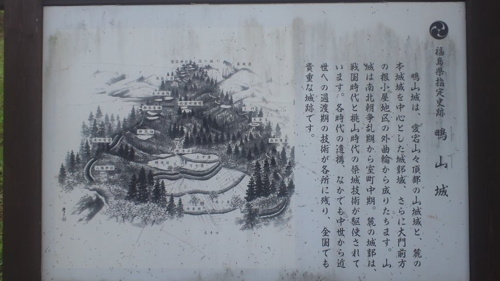 福島県指定史跡 鴫山城
鴫山城は、愛宕山々頂部の山城域と、麓の
本城域を中心とした城郭域、さらに大門前方
の根小屋地区の外曲輪から成りたちます。山
城は南北朝争乱期から室町中期。麓の城郭は、
戦国時代と桃山時代の築城技術が駆使されて
います。各時代の遺構、なかでも中世から近
世への過渡期の技術が各所に残り、全国でも
貴重な城跡です。